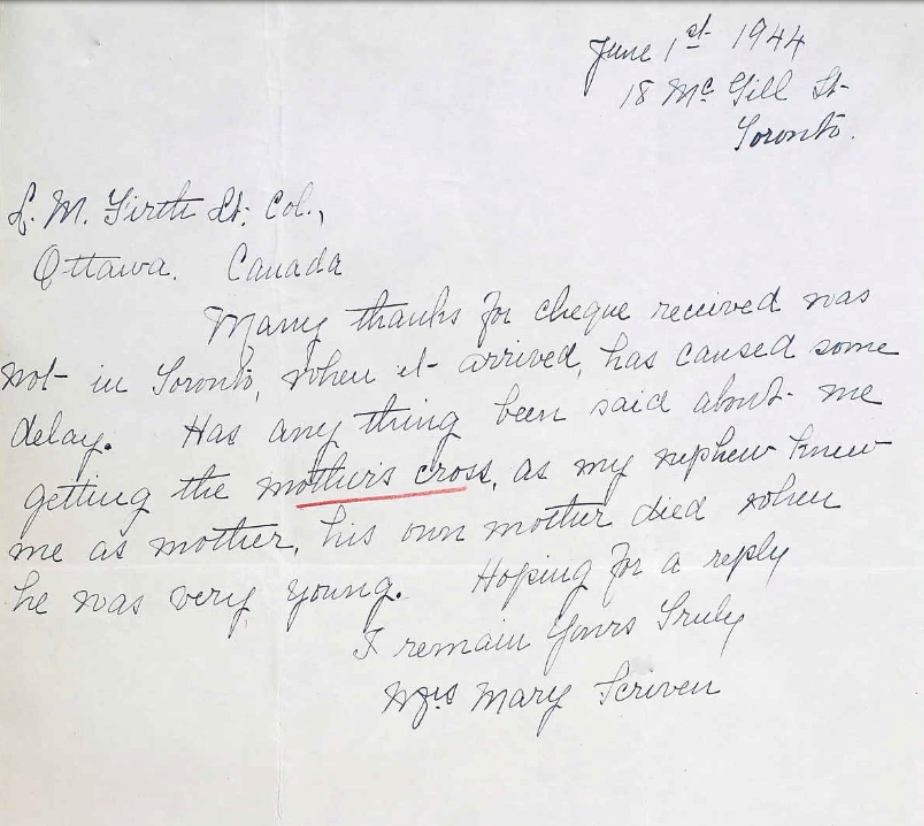 June 1st 1944
18 Mc Gill St.
Toronto.
L. M. Firth Lt. Col.,
Ottawa. Canada
Many thanks for cheque received was
not in Toronto, when it arrived, has caused some
delay. Has any thing been said about me
getting the mother's cross, as my nephew knew
me as mother, his own mother died when
he was very young. Hoping for a reply
I remain Yours Truly
Mrs Mary Scriven